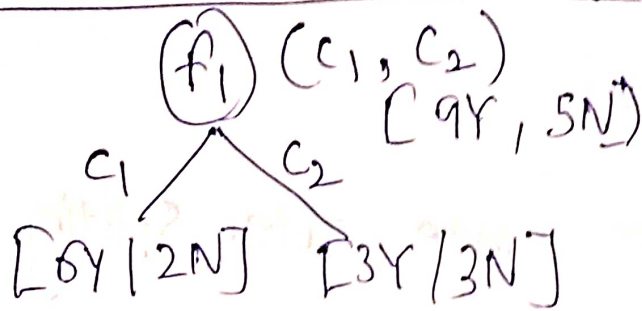 f1 (C1, C2)
[9Y, 5N]
C1 C2
[6Y|2N] [3Y/3N]